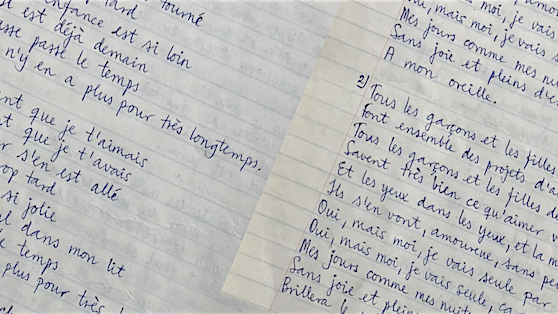 tard
tourné
enfance est si loin
est déjà demain
passe le temps
n'y en a plus pour très longtemps.
que je t'aimais
que je t'avais
s'en est allé
trop tard
si jolie
dans mon lit
temps
plus pour très
mais moi, je vais
Mes jours comme mes
Sans joie et pleins d'
A mon oreille.
2) Tous les garçons et les filles
Font ensemble des projets d'
Tous les garçons et les filles de
Savent très bien ce qu'aimer
Et les yeux dans les yeux, et la
Ils s'en vont, amoureux, sans
Oui, mais moi, je vais seule par
Oui, mais moi, je vais seule, ca
Mes jours comme mes nuits
Sans joie et pleins
Brillera le